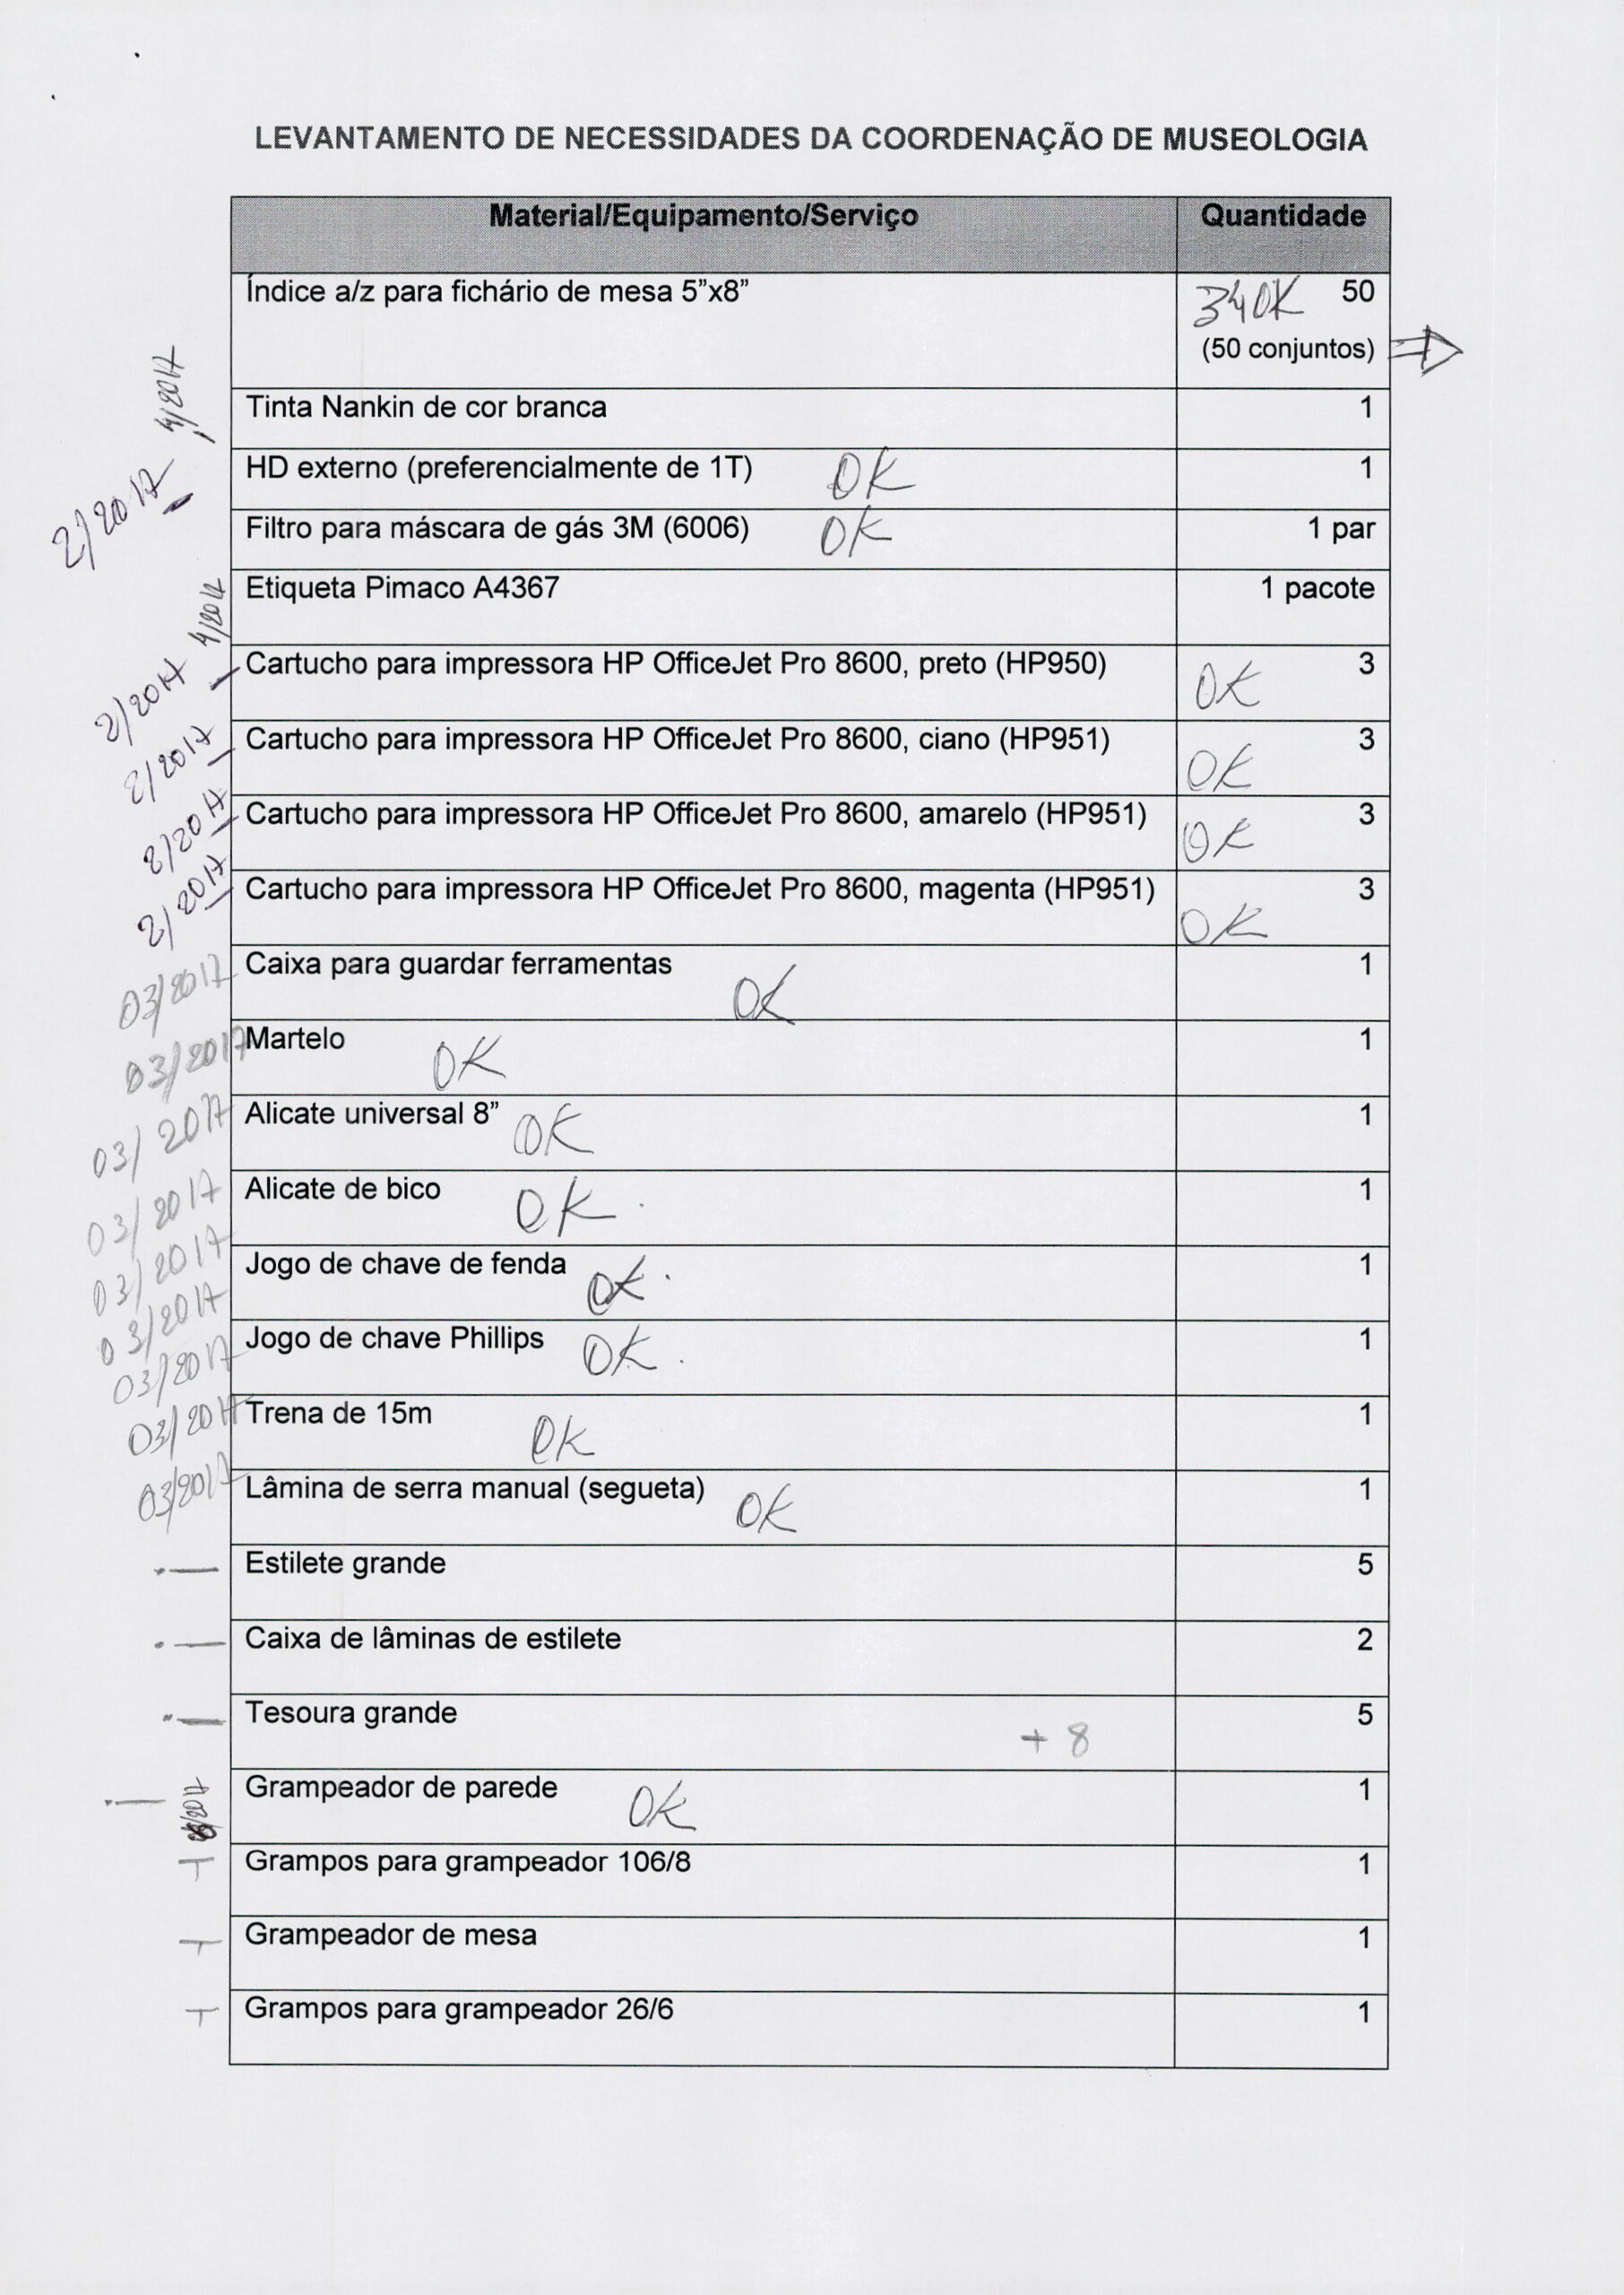 LEVANTAMENTO DE NECESSIDADES DA COORDENAÇÃO DE MUSEOLOGIA
Material/Equipamento/Serviço Quantidade
Índice a/z para fichário de mesa 5”x8” 34 OK 50
(50 conjuntos)
4/2017 Tinta Nankin de cor branca 1
2/2017 HD externo (preferencialmente de 1T) OK 1
Filtro para máscara de gás 3M (6006) OK 1 par
4/2017 Etiqueta Pimaco A4367 1 pacote
2/2017 Cartucho para impressora HP OfficeJet Pro 8600, preto (HP950) OK 3
2/2017 Cartucho para impressora HP OfficeJet Pro 8600, ciano (HP951) OK 3
2/2017 Cartucho para impressora HP OfficeJet Pro 8600, amarelo (HP951) OK 3
2/2017 Cartucho para impressora HP OfficeJet Pro 8600, magenta (HP951) OK 3
03/2017 Caixa para guardar ferramentas OK 1
03/2017 Martelo OK 1
03/2017 Alicate universal 8” OK 1
03/2017 Alicate de bico OK 1
03/2017 Jogo de chave de fenda OK 1
03/2017 Jogo de chave Phillips OK 1
03/2017
03/2017 Trena de 15m OK 1
03/2017 Lâmina de serra manual (segueta) OK 1
Estilete grande 5
Caixa de lâminas de estilete 2
Tesoura grande + 8 5
Grampeador de parede OK 1
T Grampos para grampeador 106/8 1
T Grampeador de mesa 1
T Grampos para grampeador 26/6 1